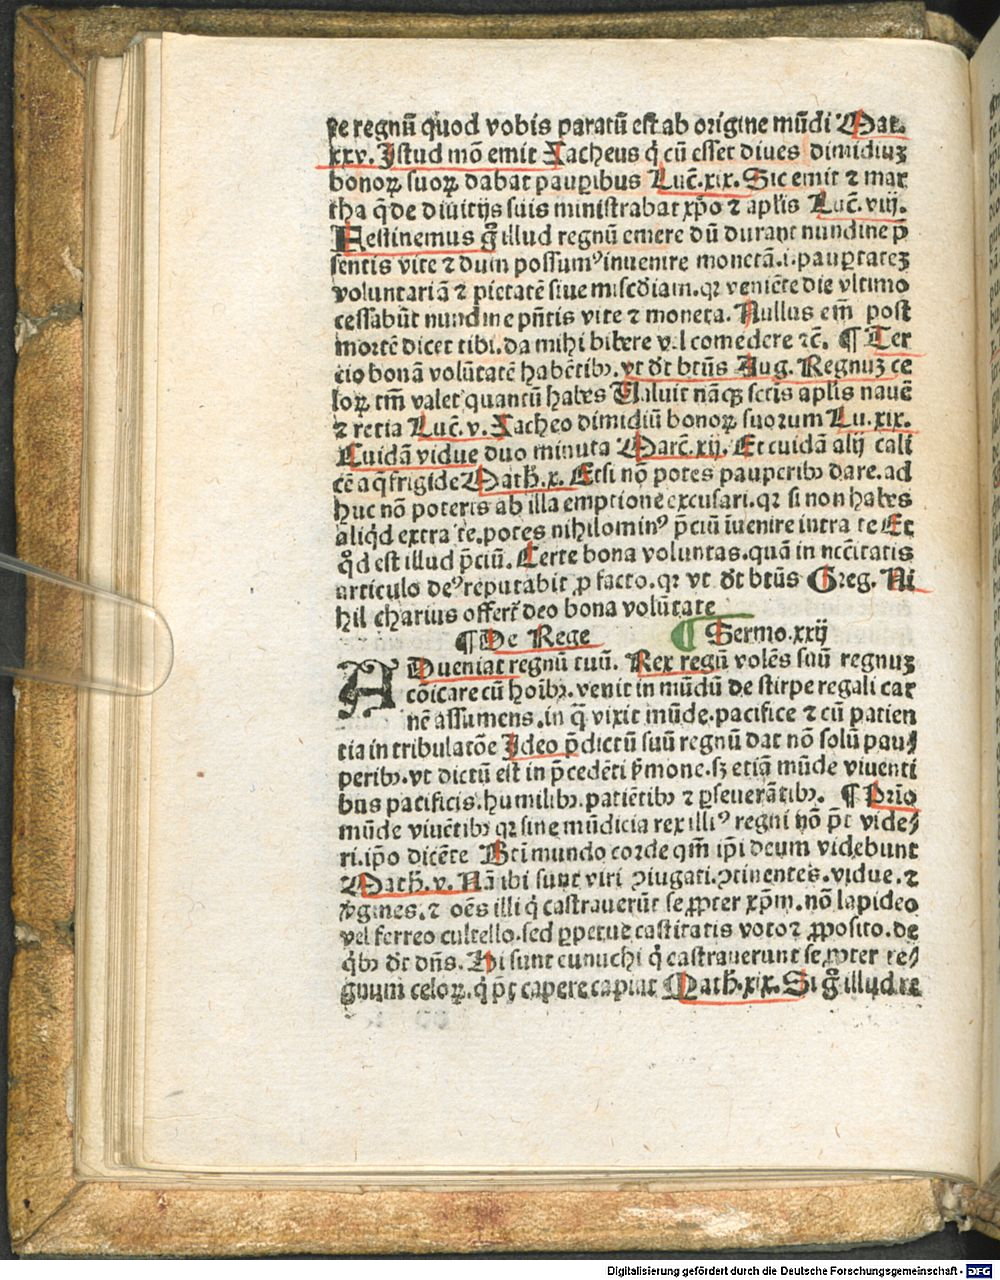 te regnū quod vobis paratū est ab origine mūdi Mat.
xxv. Istud mō emit Zacheus q̇ cū esset diues dimidiuʒ
bonoꝝ suoꝝ dabat paupibus Luc̄.xix. Sic emit ⁊ mar
tha q̄ de diuitijs suis ministrabat xp̄o ⁊ aplis Luc̄. viij.
Festinemus g̊ illud regnū emere dū durant nundine p̄
sentis vite ⁊ dum possumꝰ inuenire monetā.i. paupertateʒ
voluntariā ⁊ pietatē siue misc̄diam. qꝛ veniēte die vltimo
cessabūt nundine pn̄tis vite ⁊ moneta. Nullus em̄ post
mortē dicet tibi. da mihi bibere vel comedere ⁊c̄. ¶ Ter
tio bonā volūtatē habētibꝫ. vt dt̄ btūs Aug. Regnuʒ ce
loꝝ tm̄ valet quantū habes Ualuit nāqꝫ sctis aplis nauē
⁊ retia Luc̄. v. Zacheo dimidiū bonoꝝ suorum Lu. xix.
Cuidā vidue duo minuta Marc̄. xij. Et cuidā alij cali
cē aq̄ frigide Math̄. x. Etsi nō potes pauperibꝫ dare. ad
huc nō poteris ab illa emptione excusari. qꝛ si non habes
aliq̇d extra te. potes nihilominꝰ p̄ciū īuenire intra te Et
q̊d est illud p̄ciū. Certe bona voluntas. quā in nc̄citatis
articulo deꝰ reputabit ꝓ facto. qꝛ vt dt̄ btūs Greg. Ni
hil charius offert̄ deo bona volūtate
¶ De Rege ¶ Sermo. xxij
ADueniat regnū tuū. Rex regū volēs suū regnuʒ
cōicare cū hoībꝫ. venit in mūdū de stirpe regali car
nē assumens. in q̄ vixit mūde. pacifice ⁊ cū patien
tia in tribulatōe Ideo p̄dictū suū regnū dat nō solū pau⸗
peribꝫ. vt dictū est in p̄cedēti ẜmone. sꝫ etiā mūde viventi
bus pacificis. humilibꝫ. patiētibꝫ ⁊ ꝑseuerātibꝫ. ¶ Prīo
mūde viuētibꝫ qꝛ sine mūdicia rex illiꝰ regni nō pt̄ vide⸗
ri. ip̄o dicēte Bt̄i mundo corde qm̄ ip̄i deum videbunt
Math̄. v. Nā ibi sunt viri ꝯiugati. ꝯtinentes. vidue. ⁊
v̇gines. ⁊ oēs illi q̇ castrauerūt se ꝓpter xp̄m. nō lapideo
vel ferreo cultello. sed ꝑpetue castitatis voto ⁊ ꝓposito. de
q̇bꝫ dt̄ dn̄s. Hi sunt eunuchi q̇ castrauerunt se ꝓpter re⸗
gnum celoꝝ. q̇ pt̄ capere capiat Math̄. xix. Si g̊ illud re
Digitalisierung gefördert durch die Deutsche Forschungsgemeinschaft - DFG